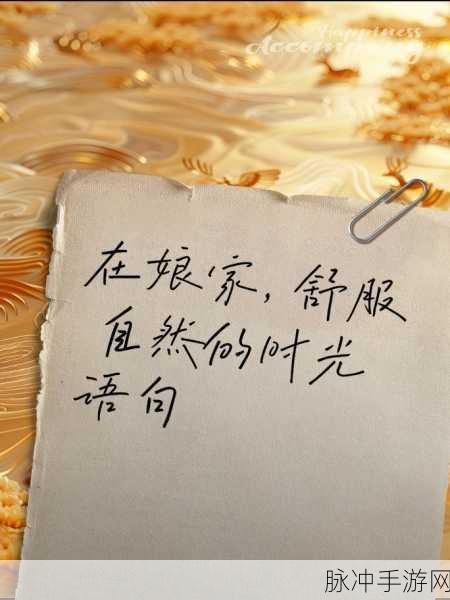 Happiness
Accompany
在娘家，舒服
自然的时光
语句
脉冲手游网